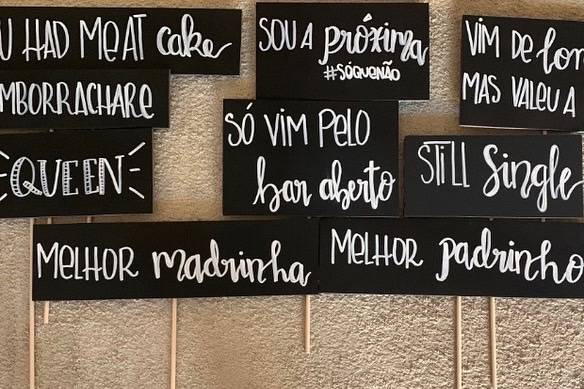 U HAD ME AT cake
SOU A próxima
#SÓQUENÃO
VIM DE lon
MAS VALEU A
MBORRACHARE
SÓ VIM PELO
bar aberto
QUEEN
STILL Single
MELHOR madrinha
MELHOR padrinho